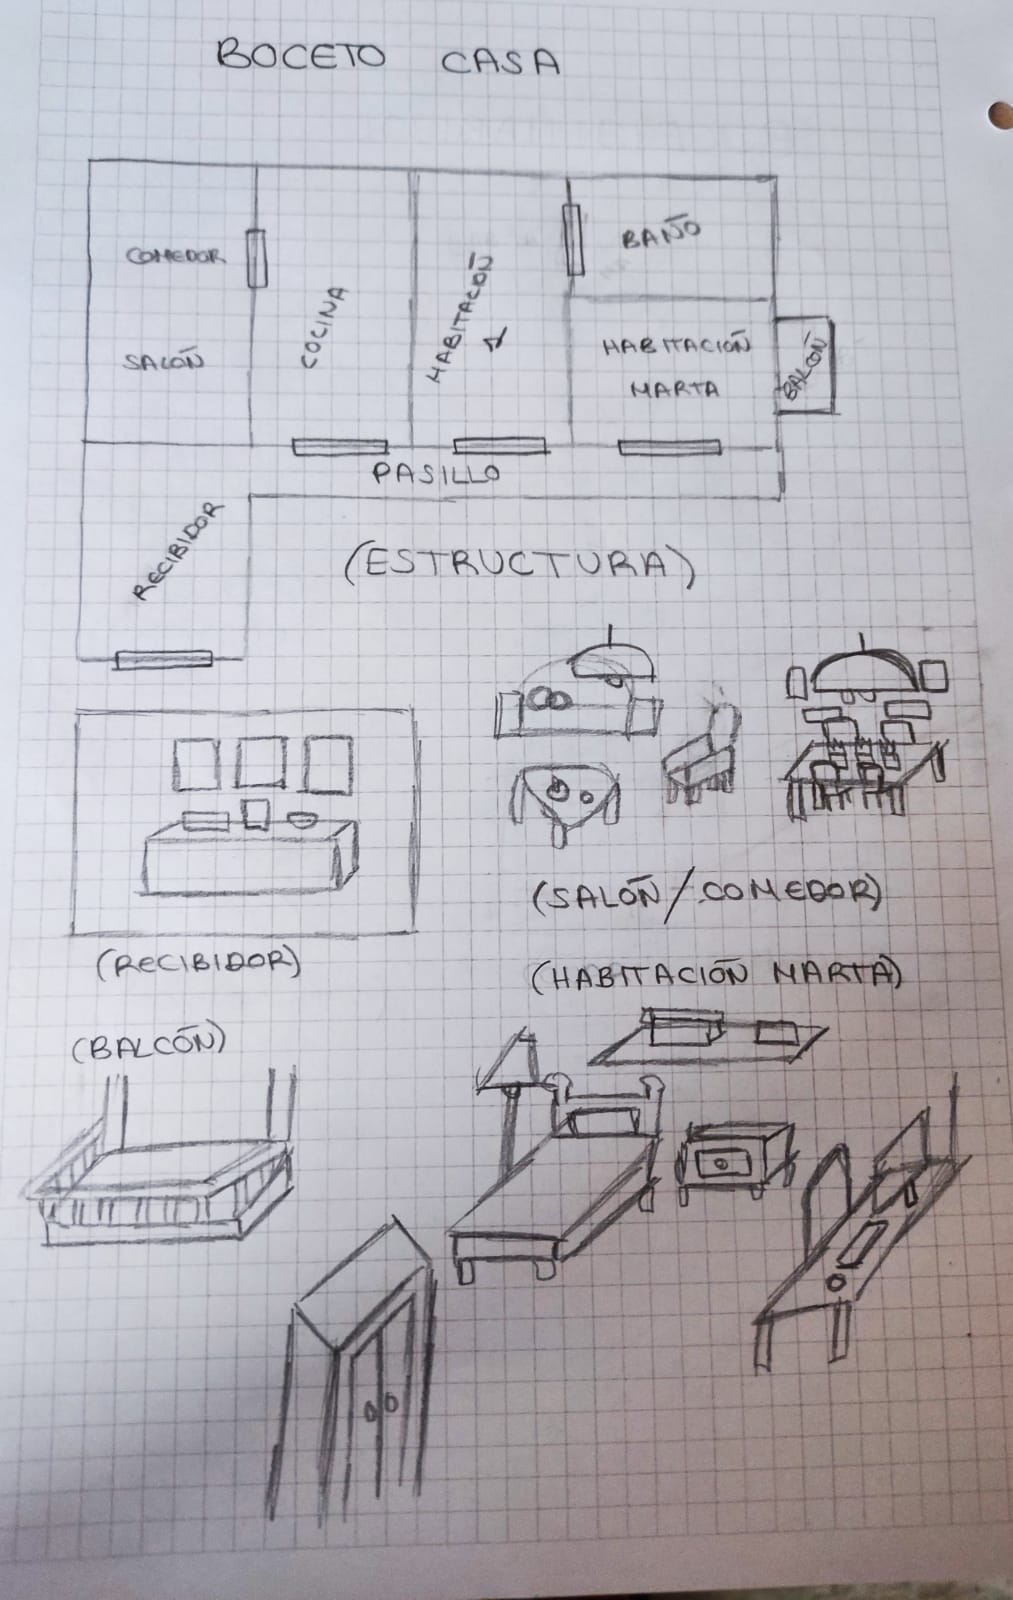 BOCETO CASA
COMEDOR
SALOÑ
COCINA
HABITACIOÑ
1
BAÑO
HABITACIOÑ
MARTA
BALCOÑ
PASILLO
RECIBIDOR
(ESTRUCTURA)
(RECIBIDOR)
(SALOÑ/COMEDOR)
(HABITACIOÑ MARTA)
(BALCÓN)